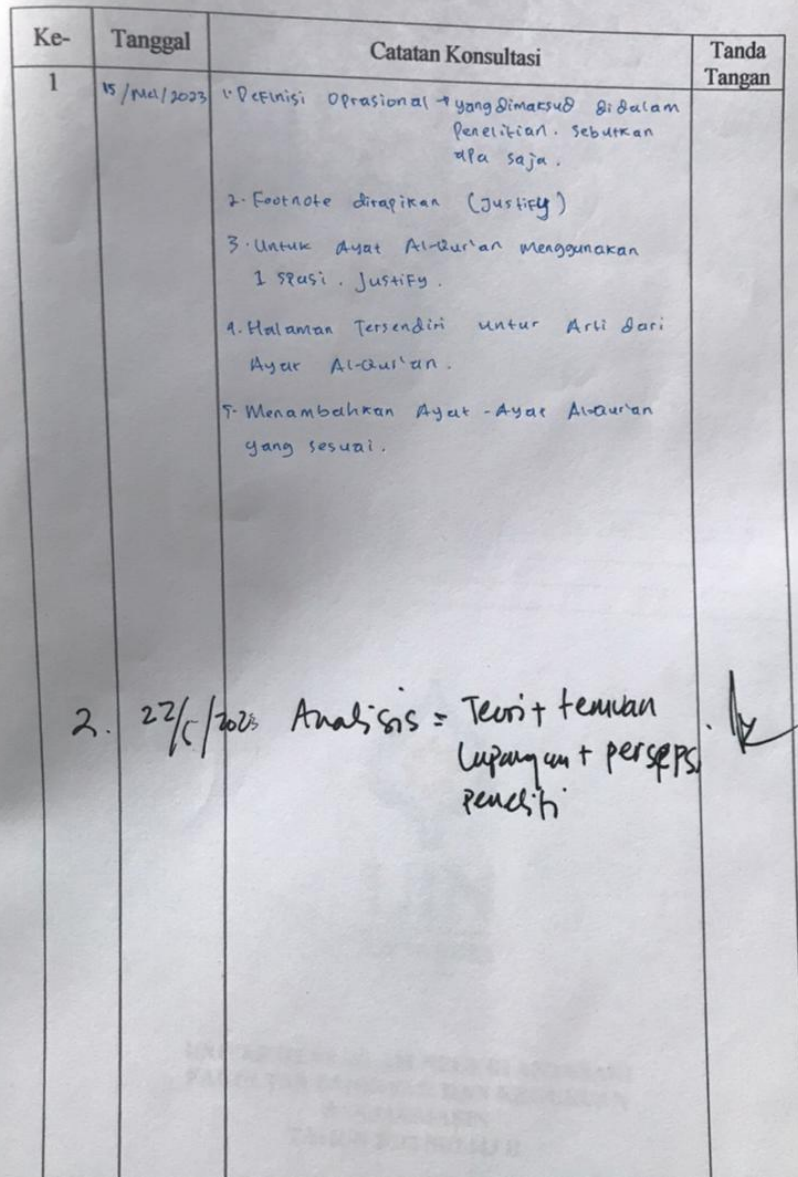 Ke- Tanggal Catatan Konsultasi Tanda Tangan
1 15/Mei/2023 1. Definisi Oprasional → yang dimaksud didalam
Penelitian. sebutkan
apa saja.
2. Footnote dirapikan (Justify)
3. Untuk Ayat Al-Qur'an menggunakan
1 spasi. Justify.
4. Halaman Tersendiri untuk Arti dari
Ayat Al-Qur'an.
5. Menambahkan Ayat-Ayat Al-Qur'an
yang sesuai.
2. 22/5/2023 Analisis = Teori + temuan
Lapangan + persepsi
peneliti